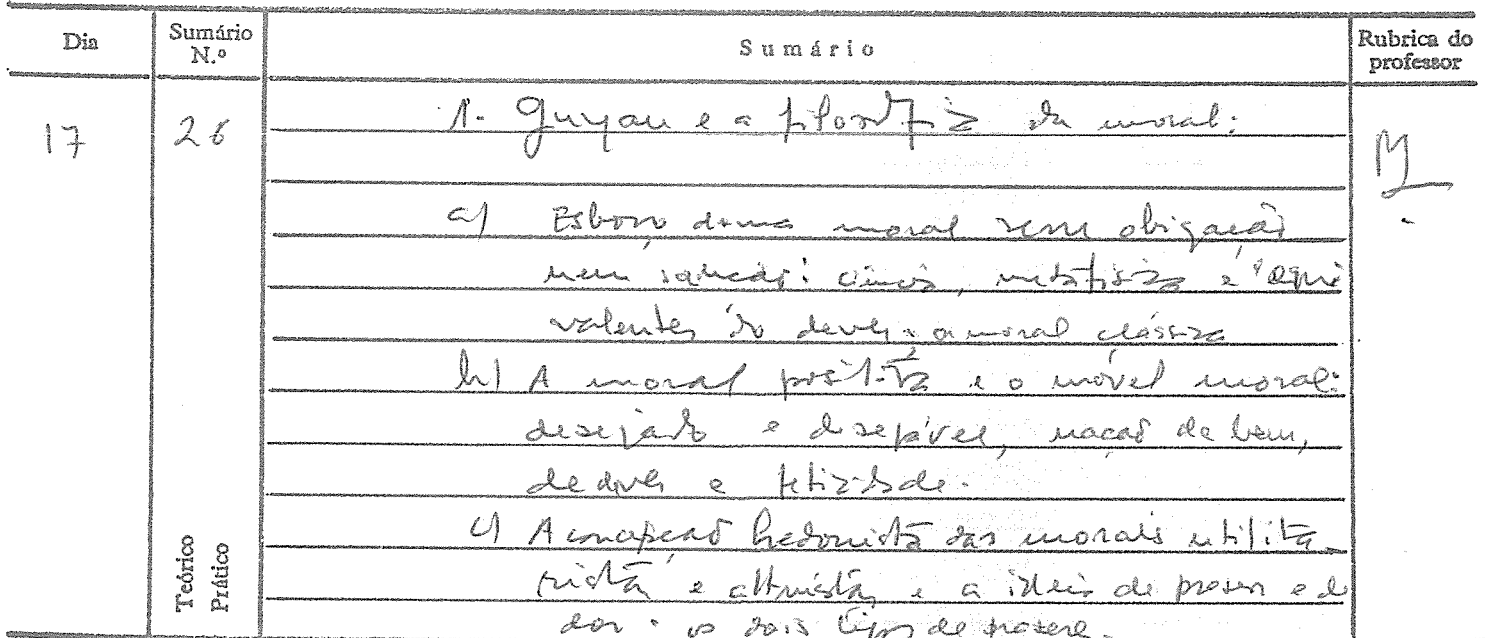 Dia
Sumário N.º
Sumário
Rubrica do professor
17
26
1. Guyau e a filosofia da moral:
a) Esboço duma moral sem obrigação
nem sanção: ciência, metafísica e "equi
valentes" do dever; a moral clássica
b) A moral positiva e o móvel moral:
desejado e desejável, noção de bem,
de dever e felicidade.
c) A concepção hedonista das morais utilita-
rista e altruista, e a ideia de prazer e de
dor: os dois tipos de prazer.
Teórico
Prático